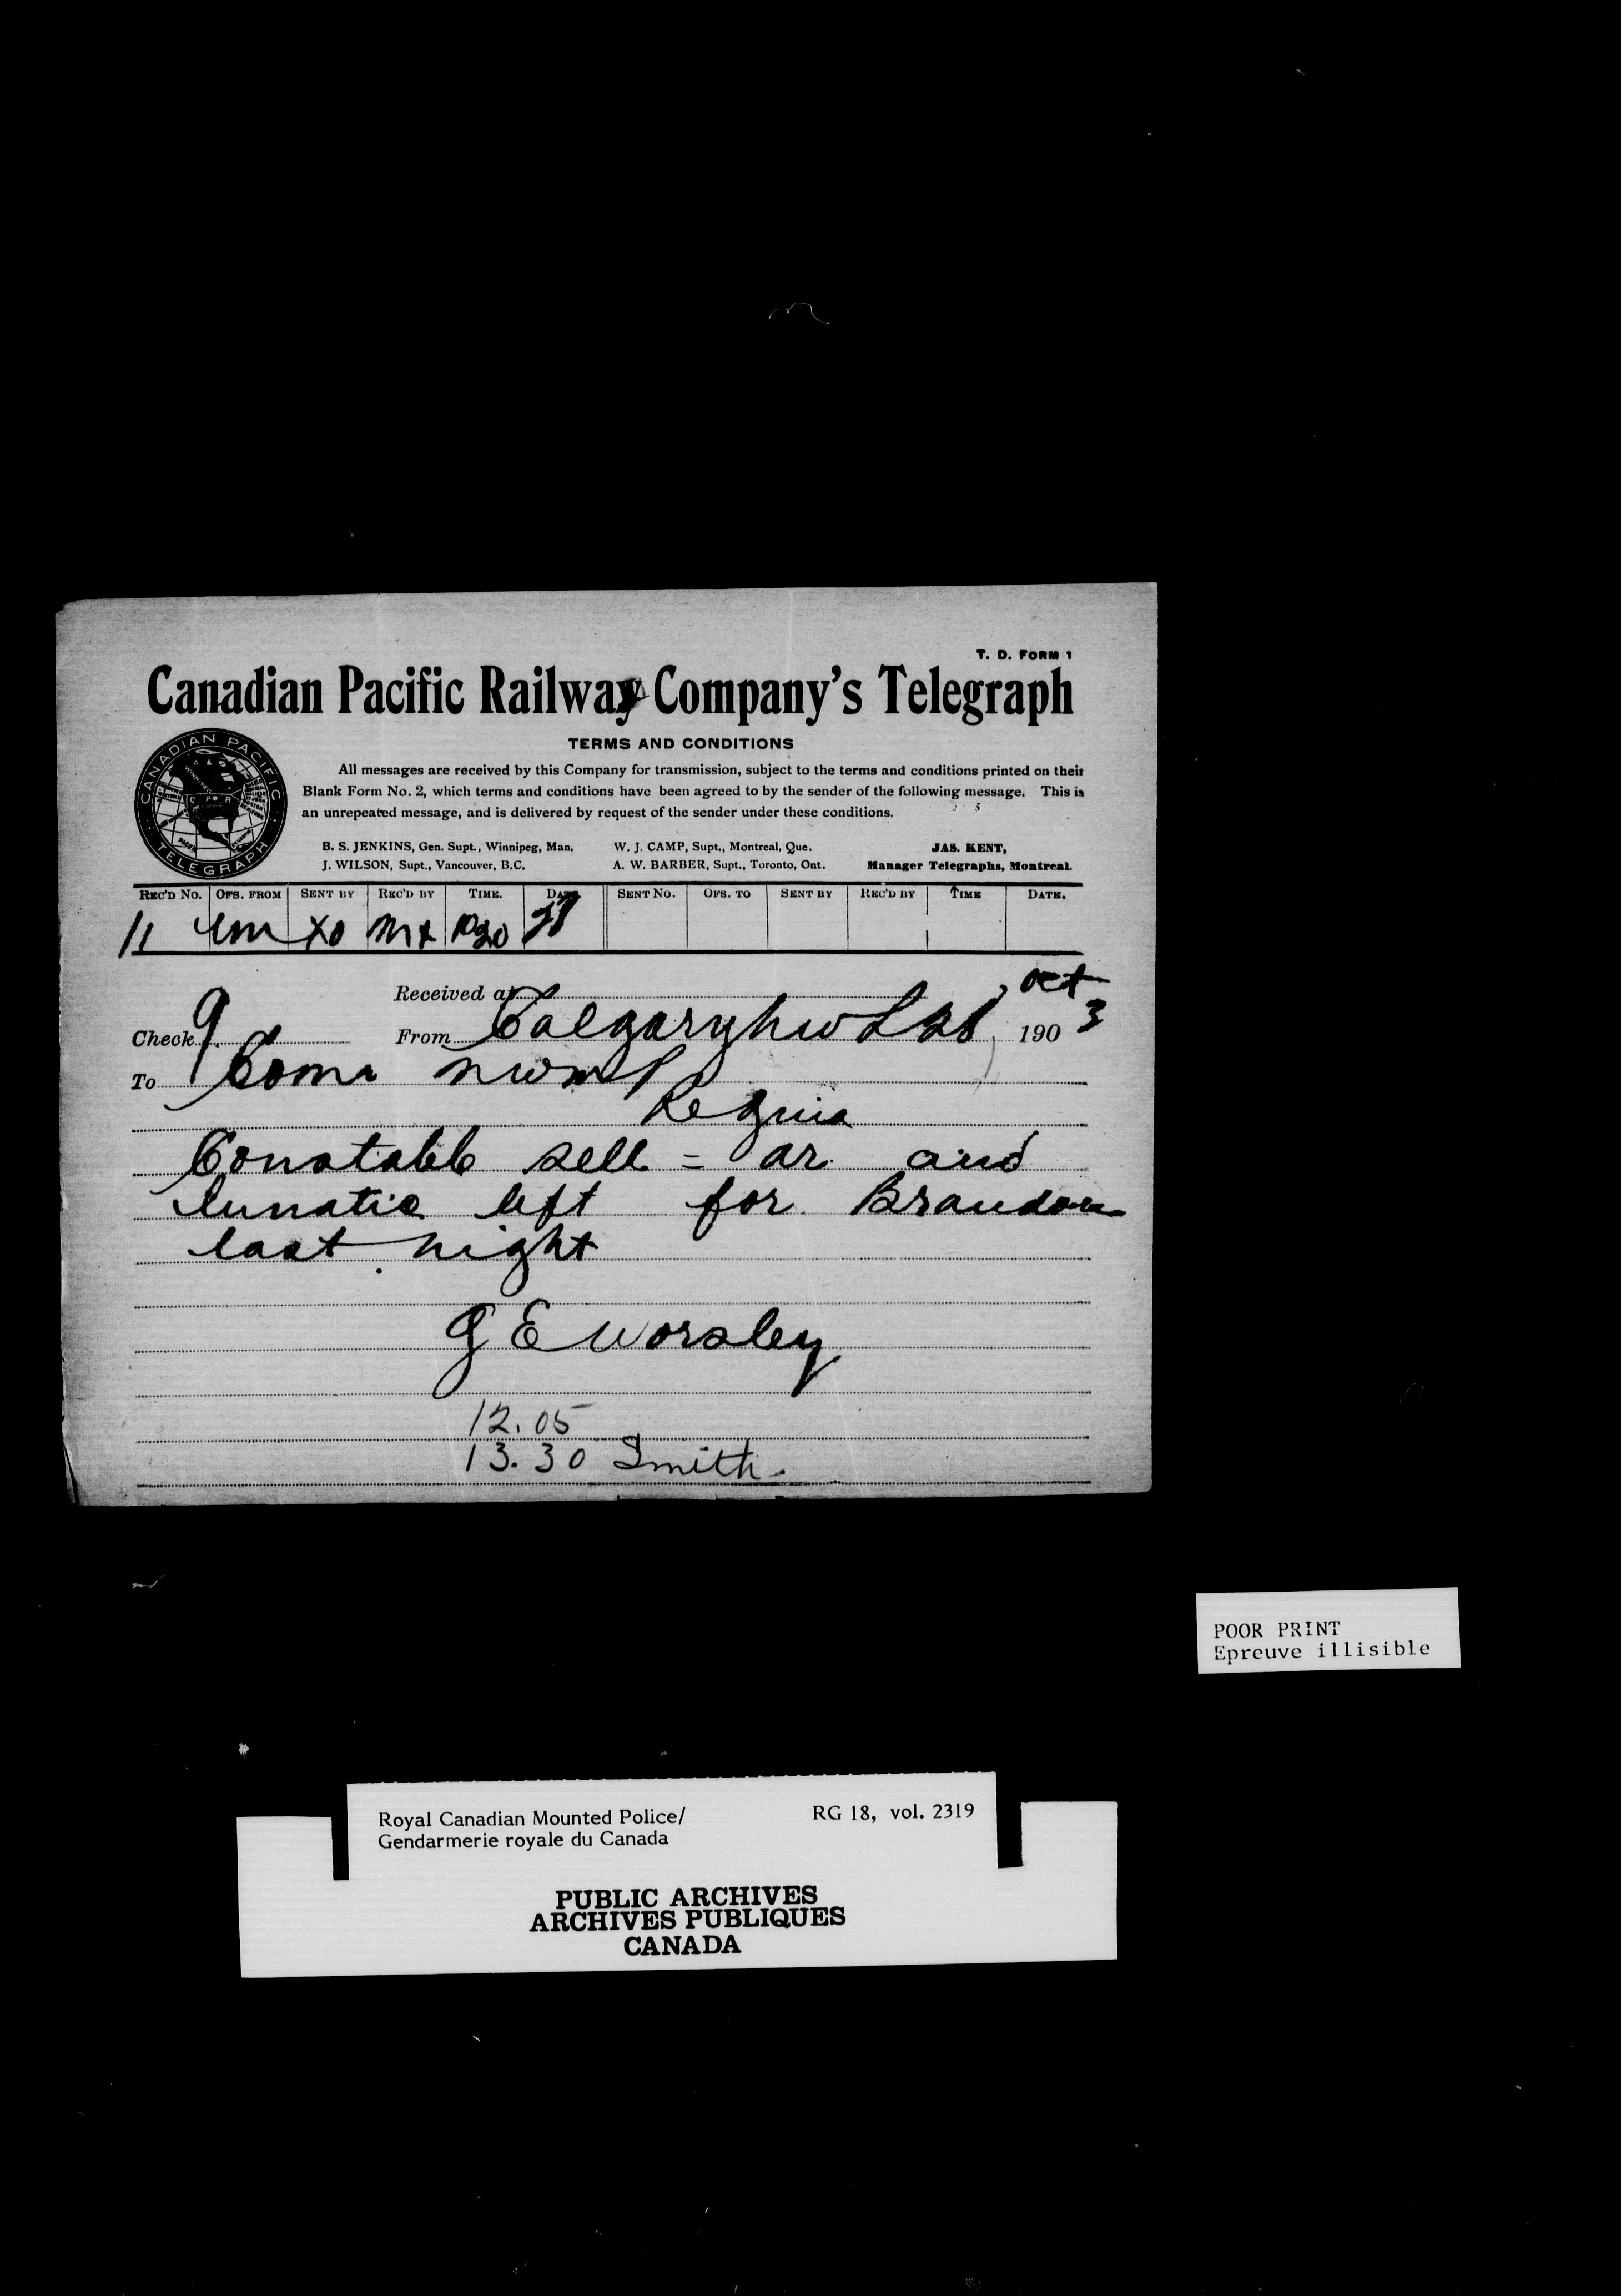 T. D. FORM 1
Canadian Pacific Railway Company's Telegraph
TERMS AND CONDITIONS
CANADIAN PACIFIC
TELEGRAPH
All messages are received by this Company for transmission, subject to the terms and conditions printed on their
Blank Form No. 2, which terms and conditions have been agreed to by the sender of the following message. This is
an unrepeated message, and is delivered by request of the sender under these conditions.
B. S. JENKINS, Gen. Supt., Winnipeg, Man. W. J. CAMP, Supt., Montreal, Que. JAS. KENT,
J. WILSON, Supt., Vancouver, B.C. A. W. BARBER, Supt., Toronto, Ont. Manager Telegraphs, Montreal.
REC'D NO. OFS. FROM SENT BY REC'D BY TIME. DATE SENT NO. OFS. TO SENT BY REC'D BY TIME DATE.
11 XO Mx 1020
Received at Oct
Check 9 From Calgary 1903
To Comr nwmP
Regina
Constable sell = ar and
lunatic left for Brandon
last night
G E Worsley
12.05
13.30 Smith
POOR PRINT
Epreuve illisible
Royal Canadian Mounted Police/ RG 18, vol. 2319
Gendarmerie royale du Canada
PUBLIC ARCHIVES
ARCHIVES PUBLIQUES
CANADA